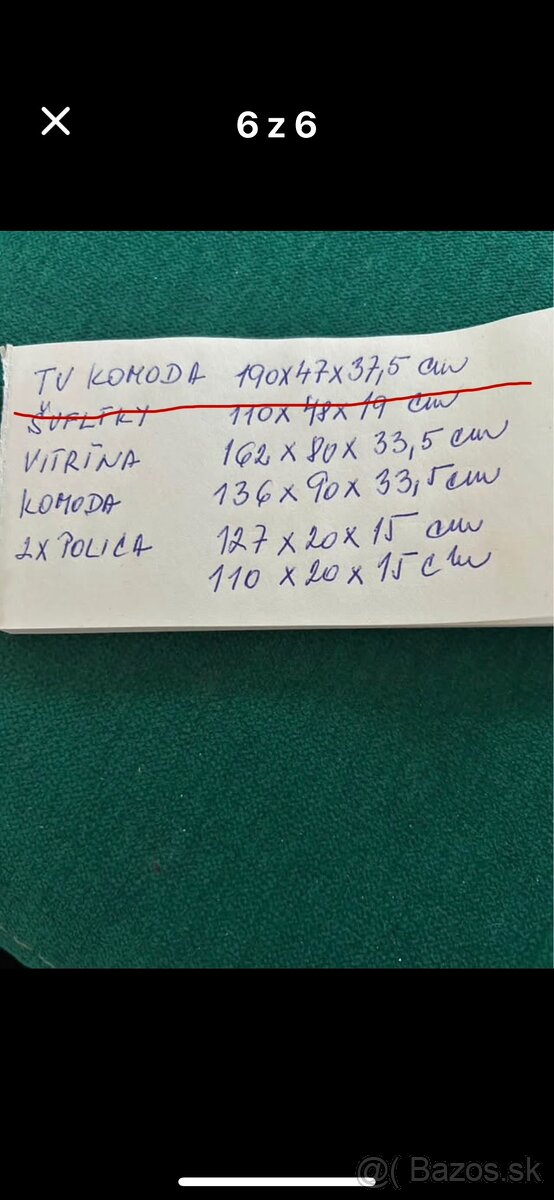 6 z 6
TV KOMODA 190x47x37,5 cm
ŠUFLÍKY 110x48x19 cm
VITRÍNA 162x80x33,5 cm
KOMODA 136x90x33,5cm
2X POLICA 127x20x15 cm
110x20x15cm
@( Bazos.sk